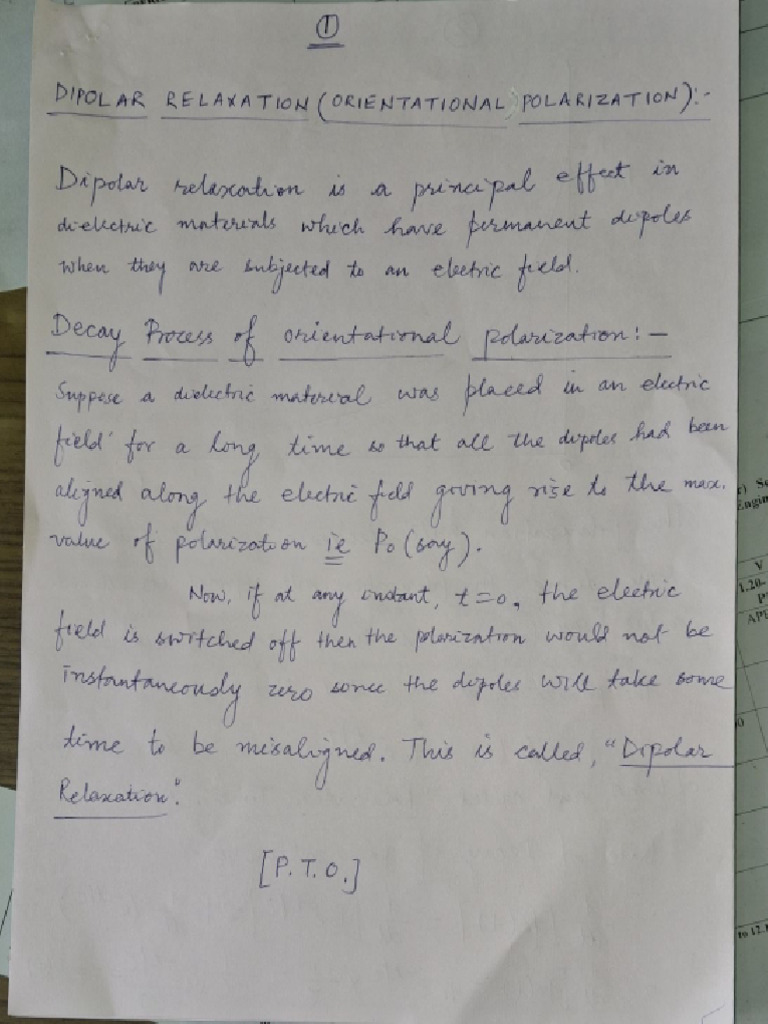 ①
DIPOLAR RELAXATION (ORIENTATIONAL POLARIZATION):-
Dipolar relaxation is a principal effect in
dielectric materials which have permanent dipoles
when they are subjected to an electric field.
Decay Process of orientational polarization:-
Suppose a dielectric material was placed in an electric
field for a long time so that all the dipoles had been
aligned along the electric field giving rise to the max.
value of polarization ie P₀ (say).
Now, if at any instant, t=0, the electric
field is switched off then the polarization would not be
instantaneously zero since the dipoles will take some
time to be misaligned. This is called, "Dipolar
Relaxation".
[P.T.O.]
Engin
V
1.20-
to 12.1